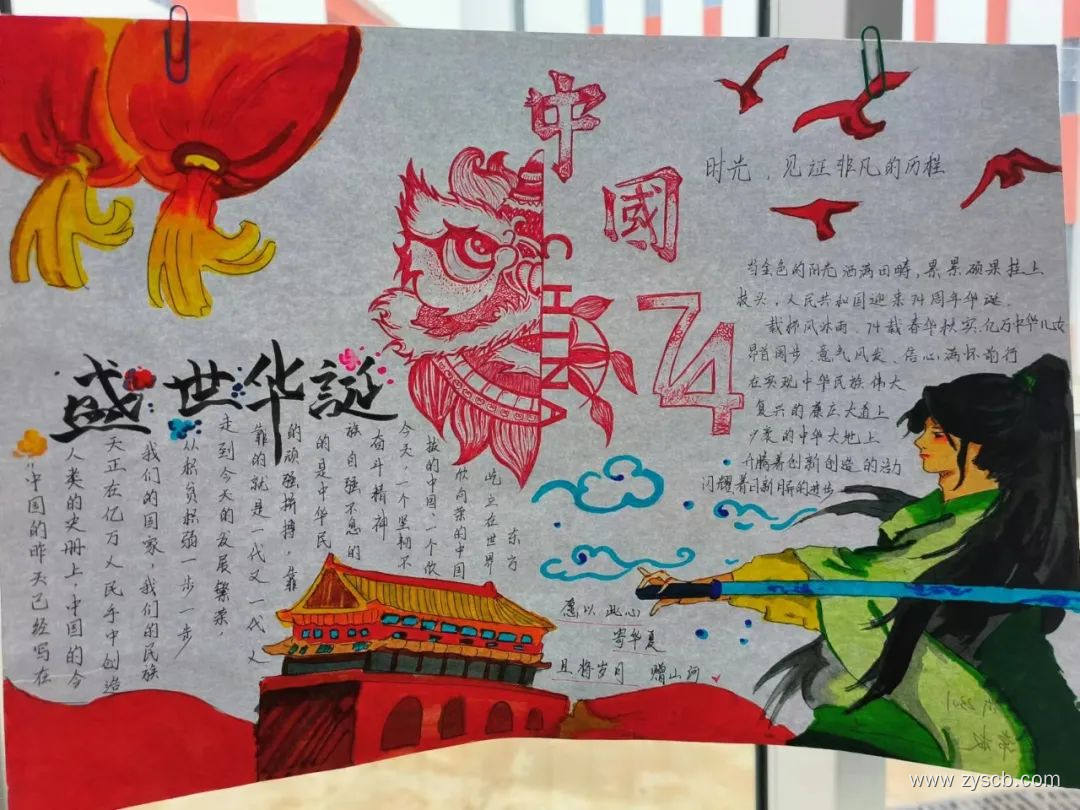 中
國
CHINA
74
时光，见证非凡的历程
当金色的阳光洒满田畴，累累硕果挂上
枝头，人民共和国迎来74周年华诞。
栉风沐雨、74载春华秋实，亿万中华儿女
昂首阔步、意气风发、信心满怀前行
在实现中华民族伟大
复兴的康庄大道上
广袤的中华大地上
升腾着创新创造的活力
闪耀着日新月异的进步
盛世华誕
"中国的昨天已经写在
人类的史册上，中国的今
天正在亿万人民手中创造
我们的国家，我们的民族
从积贫积弱一步一步
走到今天的发展繁荣，
靠的就是一代又一代人
的顽强拼搏，靠
的是中华民
族自强不息的
奋斗精神
今天，一个坚韧不
拔的中国一个欣
欣向荣的中国
屹立在世界
东方
愿以此心
寄华夏
且将岁月 赠山河
www.zyscb.com